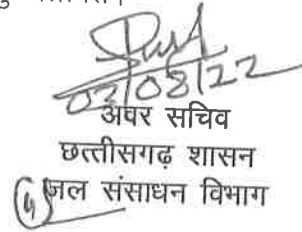 02/08/22
अपर सचिव
छत्तीसगढ़ शासन
जल संसाधन विभाग